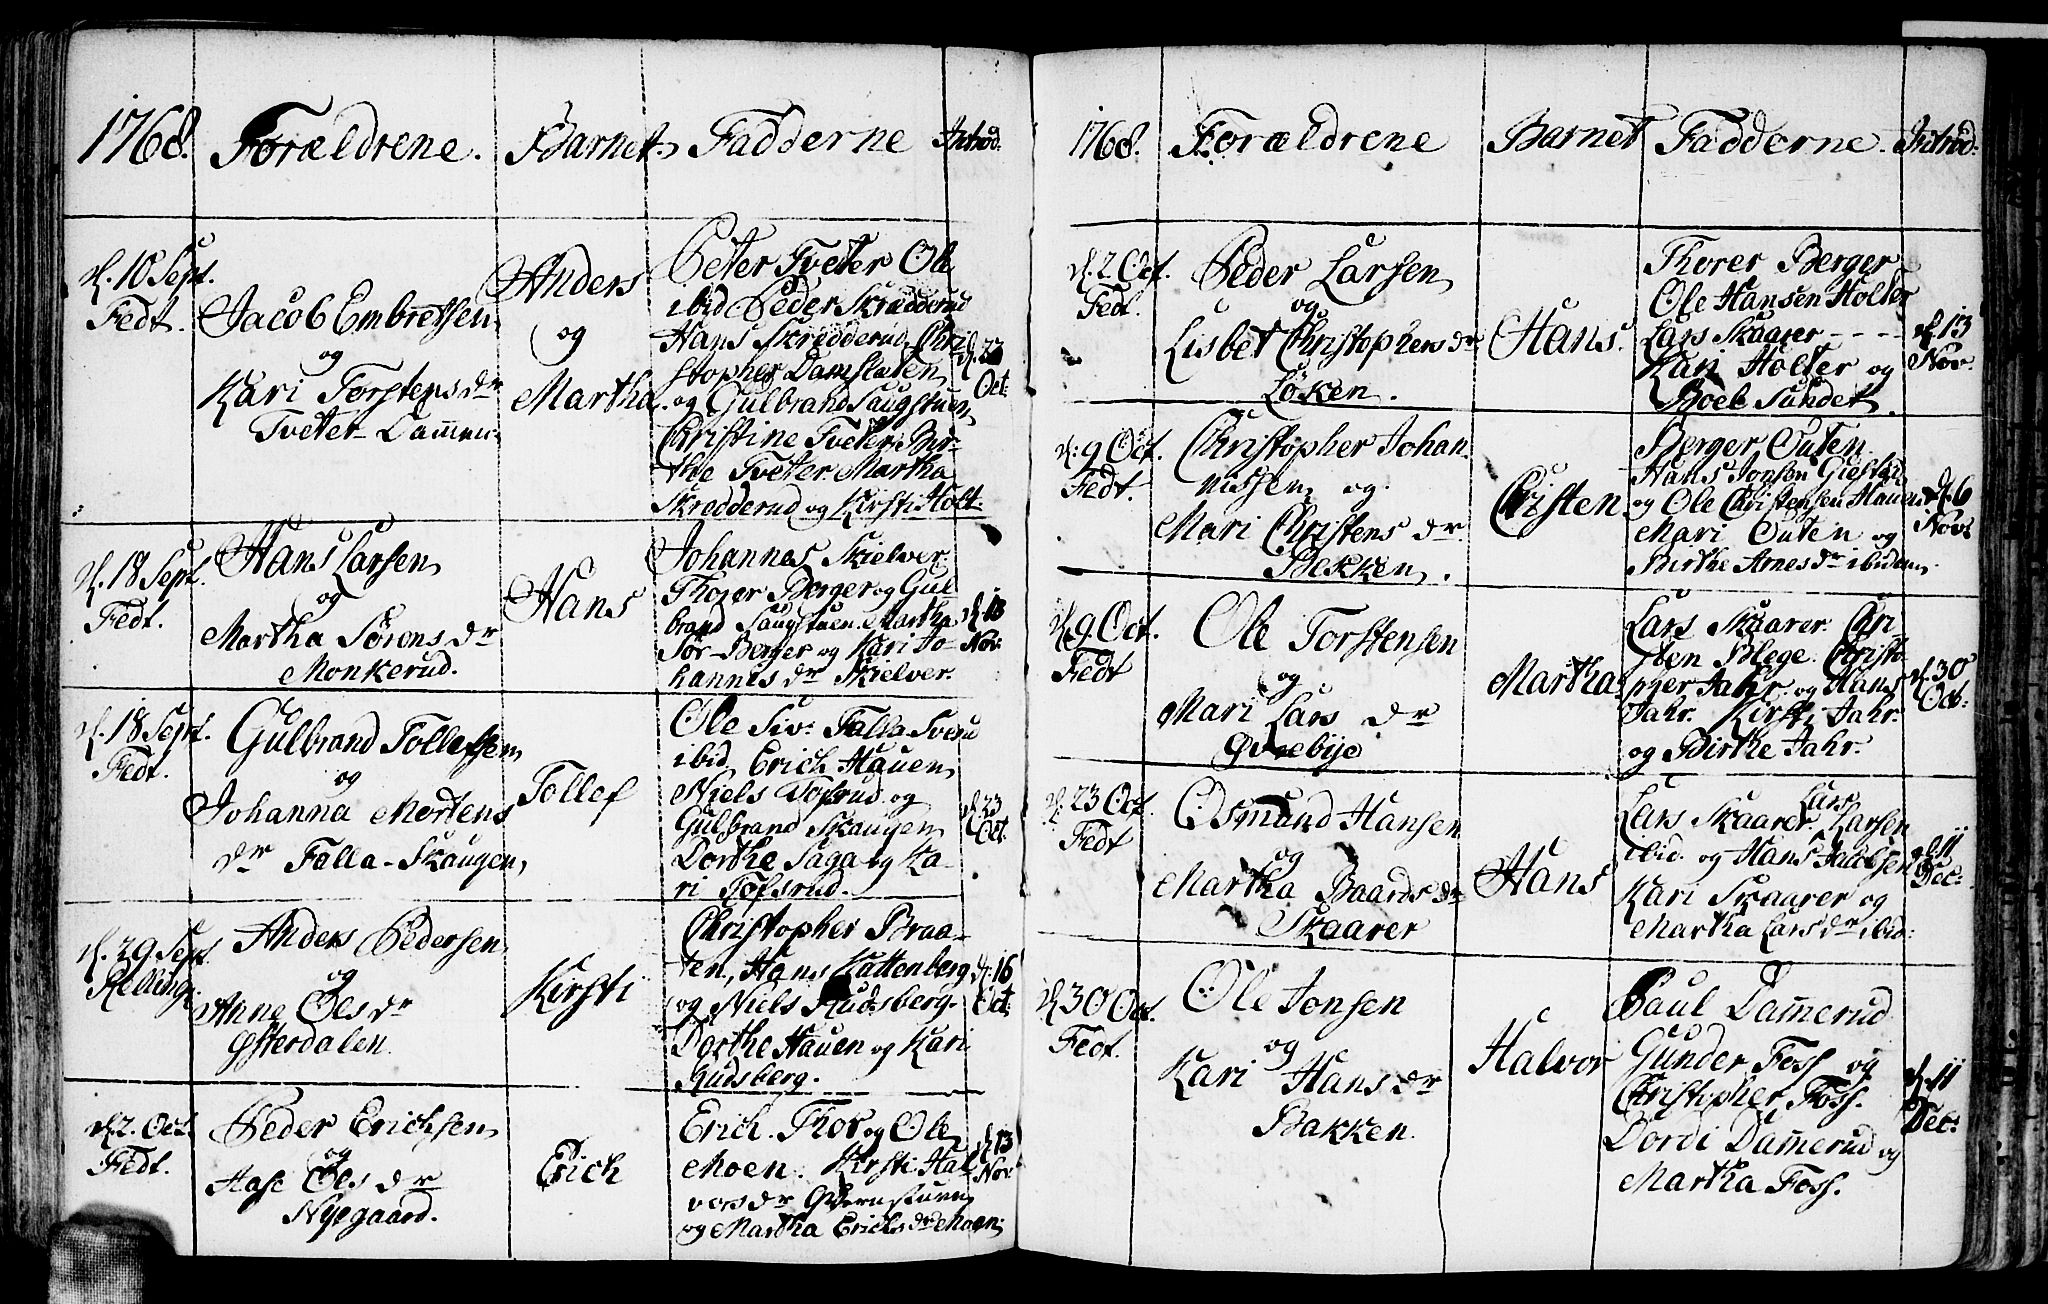 1768. Forældrene. Barnet Fadderne Introd.
d. 10 Sept.
Fedt.
Jacob Embretsen
og
Kari Torstens dr
Tveter-Dam̄en
Anders
og
Martha
Peter Tveter Ole
ibid Peder Skrædderud
Hans Skrædderud, Chri
stopher Damslæten
og Gulbrand Saugstuen
Christine Tveter Bir-
the Tveter Martha
Skredderud og Kirsti Holt.
Oct:
d. 18 Sept.
Fedt.
Hans Larsen
og
Martha Sørens dr
Monkerud.
Hans
Johannes Skielver
Thorer Berger og Gul
brand Saugstuen. Martha
Sør-Berger og Kari Jo-
hannes dr Skielver.
d. 13
Nov.
d. 18 Sept.
Fedt.
Gulbrand Tollefsen
og
Johanna Mortens
dr Falla-Skaugen
Tollef
Ole Siv: Falla Svend
ibid Erich Hauen
Niels Tofsrud og
Gulbrand Skaugen
Dorthe Saga og Ka-
ri Tofsrud.
d. 23
Oct.
d. 29 Sept.
Anders Pedersen
og
Anne Ols dr
Østerdalen
Kirsti
Christopher Braa-
ten, Hans Kattenberg
og Niels Rudsberg.
Dorthe Hauen og Kari
Rudsberg.
d. 16
Oct:
d. 2. Oct.
Fedt.
Peder Erichsen
og
Aase Ols dr
Nyegaard.
Erich
Erich. Thor og Ole
Moen. Kirsti Hal
vors dr Qvernstuen
og Martha Erichs dr Moen
d. 13
Nov.
1768. Forældrene Barnet Fadderne. Introd:
d. 2 Oct.
Fedt.
Peder Larsen
og
Lisbet Christophers dr
Løken.
Hans.
Thorer Berger
Ole Hansen Holter
Lars Skaarer
Kari Holter og
Boel Sundet
d. 13
Nov.
d: 9 Oct.
Fedt.
Christopher Johan-
nissen og
Mari Christens dr
Bekken.
Christen
Berger Outen
Hans Jonsen Gielstad
og Ole Christensen Hauen
Mari Outen og
Birthe Arnes dr ibidem.
d. 6
Nov:
d. 9. Oct.
Fedt
Ole Torstensen
og
Mari Lars dr
Øvrebye
Martha
Lars Skaarer. Chri
sten Blege. Christo-
pher Jahr. og Hans
Jahr. Kirsti Jahr.
og Birthe Jahr.
d. 30
Oct:
d. 23 Oct.
Fedt
Osmund Hansen
og
Martha Baards dr
Skaarer
Hans
Lars Skaarer. Lars Larsen
ibid. og Hans Jacobsen
Kari Skaarer og
Martha Lars dr ibid:
d. 11
Dec:
d. 30 Oct.
Fedt.
Ole Jonsen
og
Kari Hans dr
Bakken.
Halvor
Paul Dam̄erud
Gunder Foss og
Christopher Foss.
Dordi Dam̄erud og
Martha Foss.
d. 11
Dec: